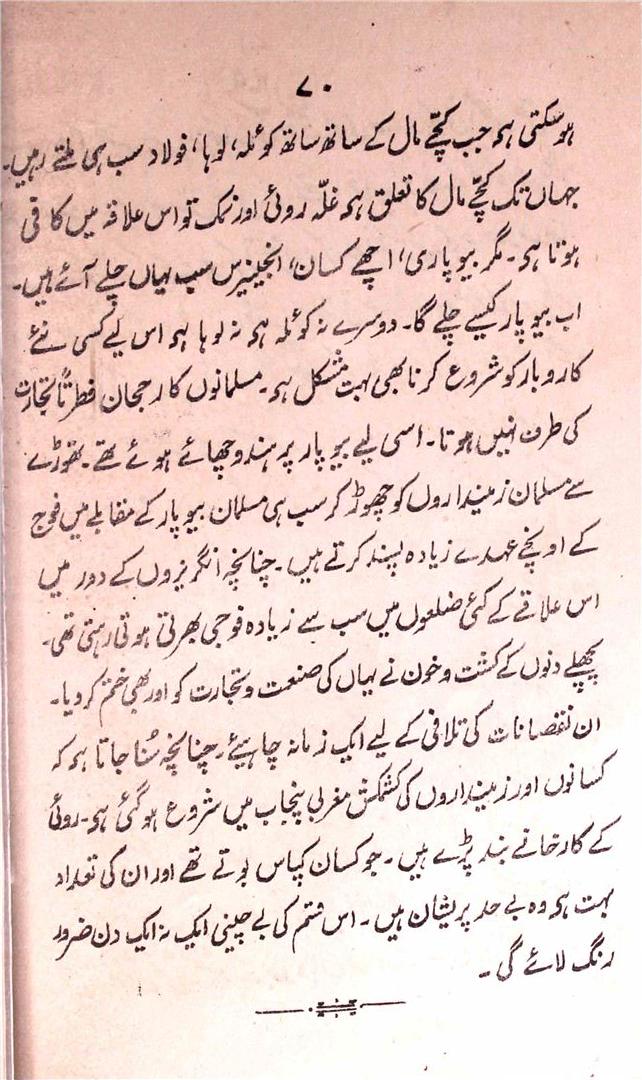 ۷۰
ہوسکتی ہے جب کچّے مال کے ساتھ ساتھ کوئلہ، لوہا، فولاد سب ہی ملتے رہیں۔
جہاں تک کچّے مال کا تعلق ہے غلّہ روئی اور نمک تو اس علاقہ میں کافی
ہوتا ہے۔ مگر بیوپاری، اچھے کسان، انجینیرس سب یہاں چلے آئے ہیں۔
اب بیوپار کیسے چلے گا۔ دوسرے نہ کوئلہ ہے نہ لوہا ہے اس لیے کسی نئے
کاروبار کو شروع کرنا بھی بہت مشکل ہے۔ مسلمانوں کا رجحان فطرتاً تجارت
کی طرف نہیں ہوتا۔ اسی لیے بیوپار پر ہندو چھائے ہوئے تھے۔ تھوڑے
سے مسلمان زمینداروں کو چھوڑ کر سب ہی مسلمان بیوپار کے مقابلے میں فوج
کے اونچے عہدے زیادہ پسند کرتے ہیں۔ چنانچہ انگریزوں کے دور میں
اس علاقے کے کئی ضلعوں میں سب سے زیادہ فوجی بھرتی ہوتی رہتی تھی۔
پچھلے دنوں کے کشت و خون نے یہاں کی صنعت و تجارت کو اور بھی ختم کر دیا۔
ان نقصانات کی تلافی کے لیے ایک زمانہ چاہیئے۔ چنانچہ سُنا جاتا ہے کہ
کسانوں اور زمینداروں کی کشمکش مغربی پنجاب میں شروع ہوگئی ہے۔ روئی
کے کارخانے بند پڑے ہیں۔ جو کسان کپاس بوتے تھے اور ان کی تعداد
بہت ہے وہ بے حد پریشان ہیں۔ اس قسم کی بے چینی ایک نہ ایک دن ضرور
رنگ لائے گی۔